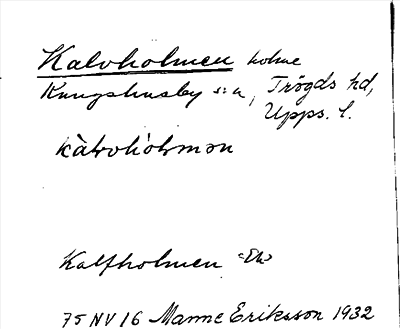 Kalvholmen holme
Kungshusby sn, Trögds hd,
Upps. l.
kàlvhòlmən
Kalfholmen "Ek"
75 NV 16 Manne Eriksson 1932